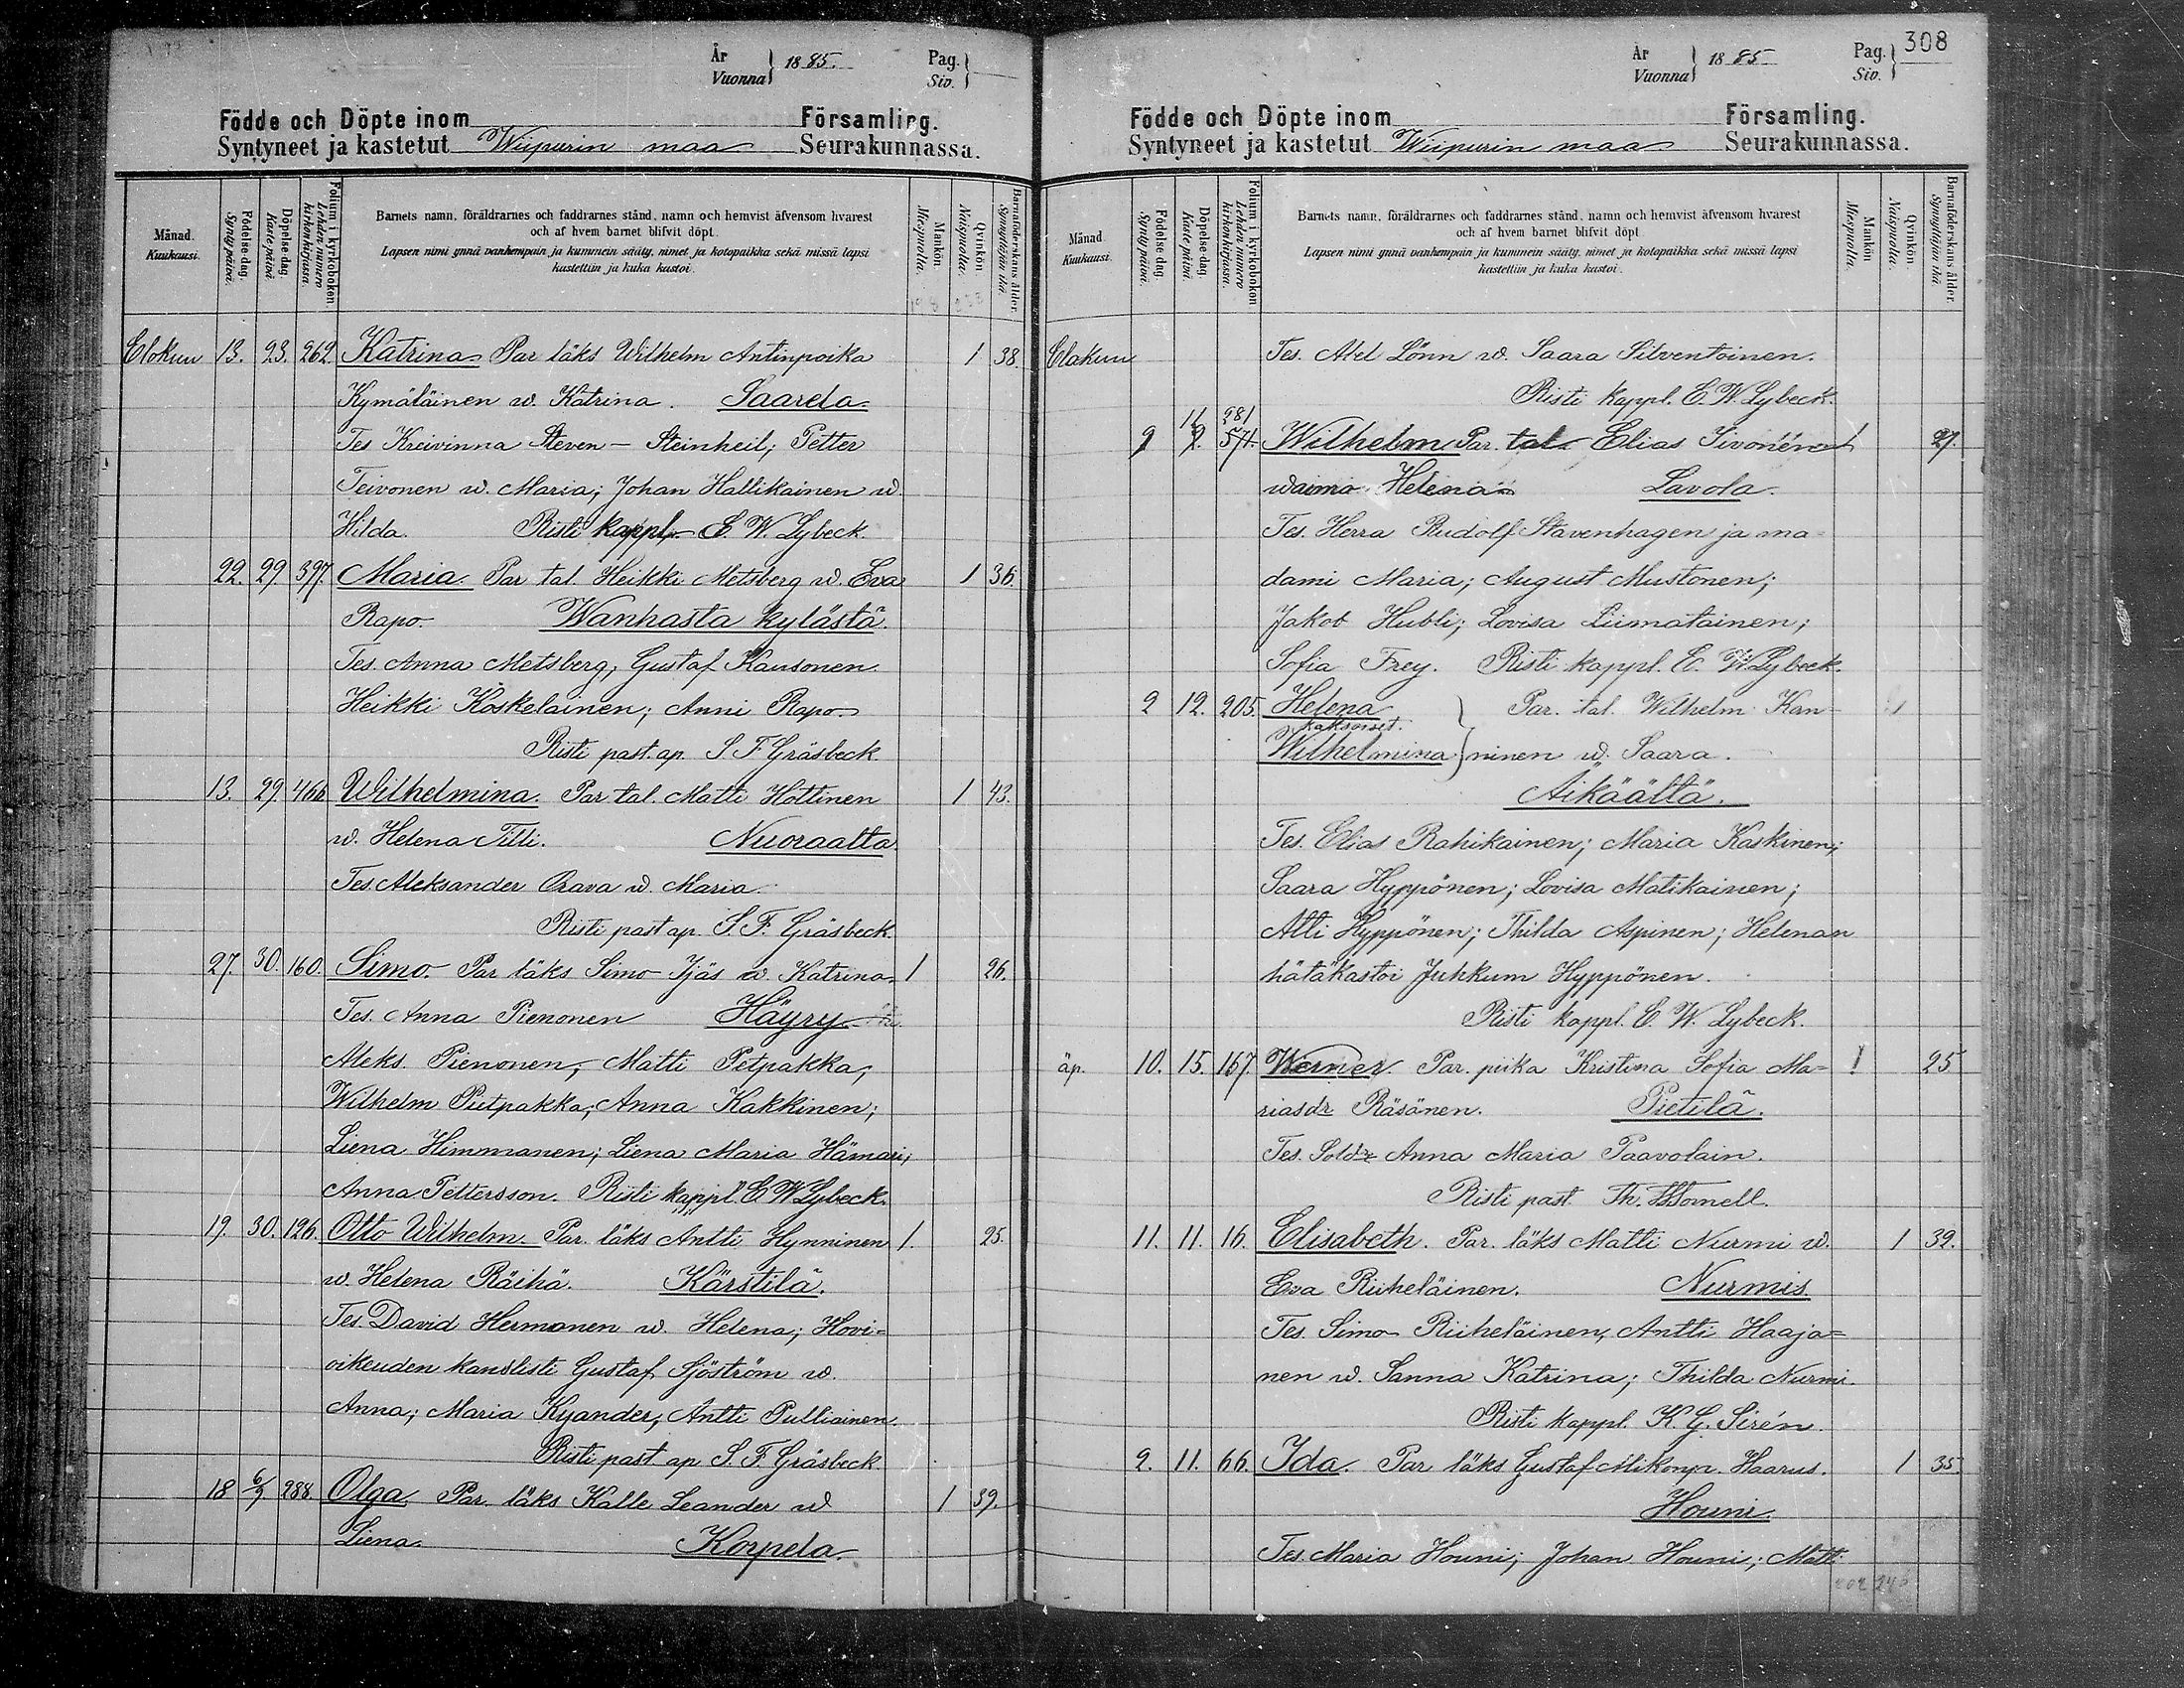 År
Vuonna } 1885.
Pag.
Siv. }
Födde och Döpte inom Församling.
Syntyneet ja kastetut Wiipurin maa Seurakunnassa.
Månad.
Kuukausi.
Födelse-dag.
Synty päivä.
Döpelse-dag.
Kaste päivä.
Folium i kyrkoboken
Lehden numero kirkonkirjassa.
Barnets namn, föräldrarnes och faddrarnes stånd, namn och hemvist äfvensom hvarest
och af hvem barnet blifvit döpt.
Lapsen nimi ynnä vanhempain ja kummein sääty, nimet ja kotopaikka sekä missä lapsi
kastettiin ja kuka kastoi.
Mankön.
Miespuolia.
Qvinkön.
Naispuolia.
Barnaföderskans ålder.
Synnyttäjän ikä
Elokuu 13. 23. 262. Katrina Par läks Wilhelm Antinpoika 1 38.
Kymäläinen w. Katrina. Saarela.
Tes Kreivinna Steven - Steinheil; Petter
Teivonen w. Maria; Johan Hallikainen w.
Hilda. Risti kappl. E. W. Lybeck.
22. 29 397. Maria. Par tal. Heikki Metsberg w. Eva 1 36.
Rapo. Wanhasta kylästä.
Tes. Anna Metsberg; Gustaf Kausonen.
Heikki Koskelainen; Anni Rapo.
Risti past. ap. S. F. Gräsbeck.
13. 29. 466 Wilhelmina. Par tal. Matti Hottinen 1 43.
w. Helena Tilli. Nuoraalta
Tes. Aleksander Orava w. Maria.
Risti past ap. S. F. Gräsbeck.
27. 30. 160. Simo. Par läks Simo Ijäs w. Katrina. 1 26.
Tes. Anna Pienonen Häyry
Aleks. Pienonen; Matti Petpakka;
Wilhelm Pietpakka; Anna Kakkinen;
Liena Himmanen; Liena Maria Hämäri;
Anna Pettersson. Risti kappl. E W Lybeck.
19. 30. 126. Otto Wilhelm. Par. läks Antti Hynninen 1. 25.
w. Helena Räihä. Kärstilä.
Tes. David Hermonen w. Helena; Hovi-
oikeuden kanslisti Gustaf Sjöström w.
Anna; Maria Kyander; Antti Pulliainen.
Risti past ap S. F. Gräsbeck.
18 6/9 288. Olga. Par. läks Kalle Leander w 1 39.
Liena. Korpela.
År
Vuonna } 1885
Pag.
Siv. } 308
Födde och Döpte inom Församling.
Syntyneet ja kastetut Wiipurin maa Seurakunnassa.
Månad
Kuukausi.
Födelse-dag.
Synty päivä.
Döpelse-dag.
Kaste päivä.
Folium i kyrkoboken
Lehden numero kirkonkirjassa.
Barnets namn, föräldrarnes och faddrarnes stånd, namn och hemvist äfvensom hvarest
och af hvem barnet blifvit döpt
Lapsen nimi ynnä vanhempain ja kummein sääty, nimet ja kotopaikka sekä missä lapsi
kastettiin ja kuka kastoi.
Mankön
Miespuolia.
Qvinkön.
Naispuolia.
Barnaföderskans ålder.
Synnyttäjän ikä
Elokuu Tes. Abel Lönn w. Saara Silventoinen.
Risti kappl. E. W. Lybeck.
11 281
2 2. 571. Wilhelm Par. tal. Elias Iivonen 1 27.
waimo Helena Lavola.
Tes. Herra Rudolf Stavenhagen ja ma-
dami Maria; August Mustonen;
Jakob Hubli; Lovisa Liimatainen;
Sofia Frey. Risti kappl. E. W. Lybeck.
2 12. 205. Helena } Par. tal. Wilhelm Kan-
kaksoiset.
Wilhelmina } ninen w. Saara.
Äikäältä.
Tes. Elias Rahikainen; Maria Kaskinen;
Saara Hyppönen; Lovisa Matikainen;
Atti Hyppönen; Thilda Aspinen; Helenan
hätäkastoi Juhkum Hyppönen.
Risti kappl. E. W. Lybeck.
äp. 10. 15. 167. Werner. Par. piika Kristina Sofia Ma- 1 25
riasdr Räsänen. Pietilä.
Tes. Anna Maria Paavolain.
Risti past. Th.
11. 11. 16. Elisabeth. Par. läks Matti Nurmi w. 1 39.
Eva Riiheläinen. Nurmis.
Tes. Simo Riiheläinen; Antti Haaja-
nen w. Sanna Katrina; Thilda Nurmi.
Risti kappl. K. G. Sirén.
2. 11. 66. Ida. Par läks Gustaf Mikonp. Haarus. 1 35.
Houni.
Tes. Maria Houni; Johan Houni; Matti